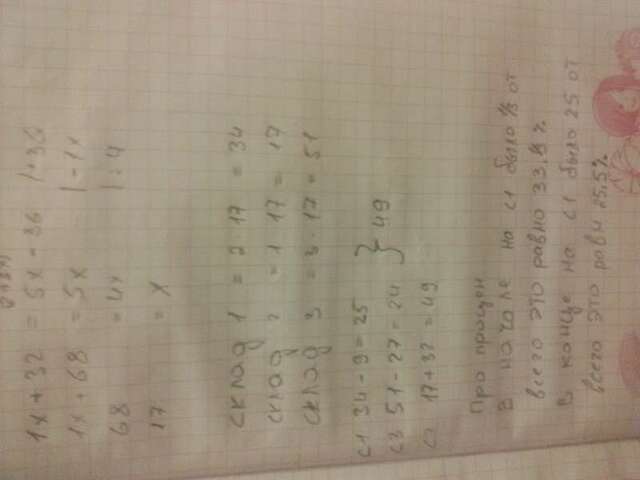 1x + 32 = 5x - 36 | + 36
1x + 68 = 5x | - 1x
68 = 4x | : 4
17 = x
склад 1 = 2 · 17 = 34
склад 2 = 1 · 17 = 17
склад 3 = 3 · 17 = 51
с1 34 - 9 = 25
с3 51 - 27 = 24 } 49
17 + 32 = 49
Про процен
В начале на с1 было 1/3 от
всего это равно 33.3%
В конце на с1 было 25 от
всего это равн 25.5%